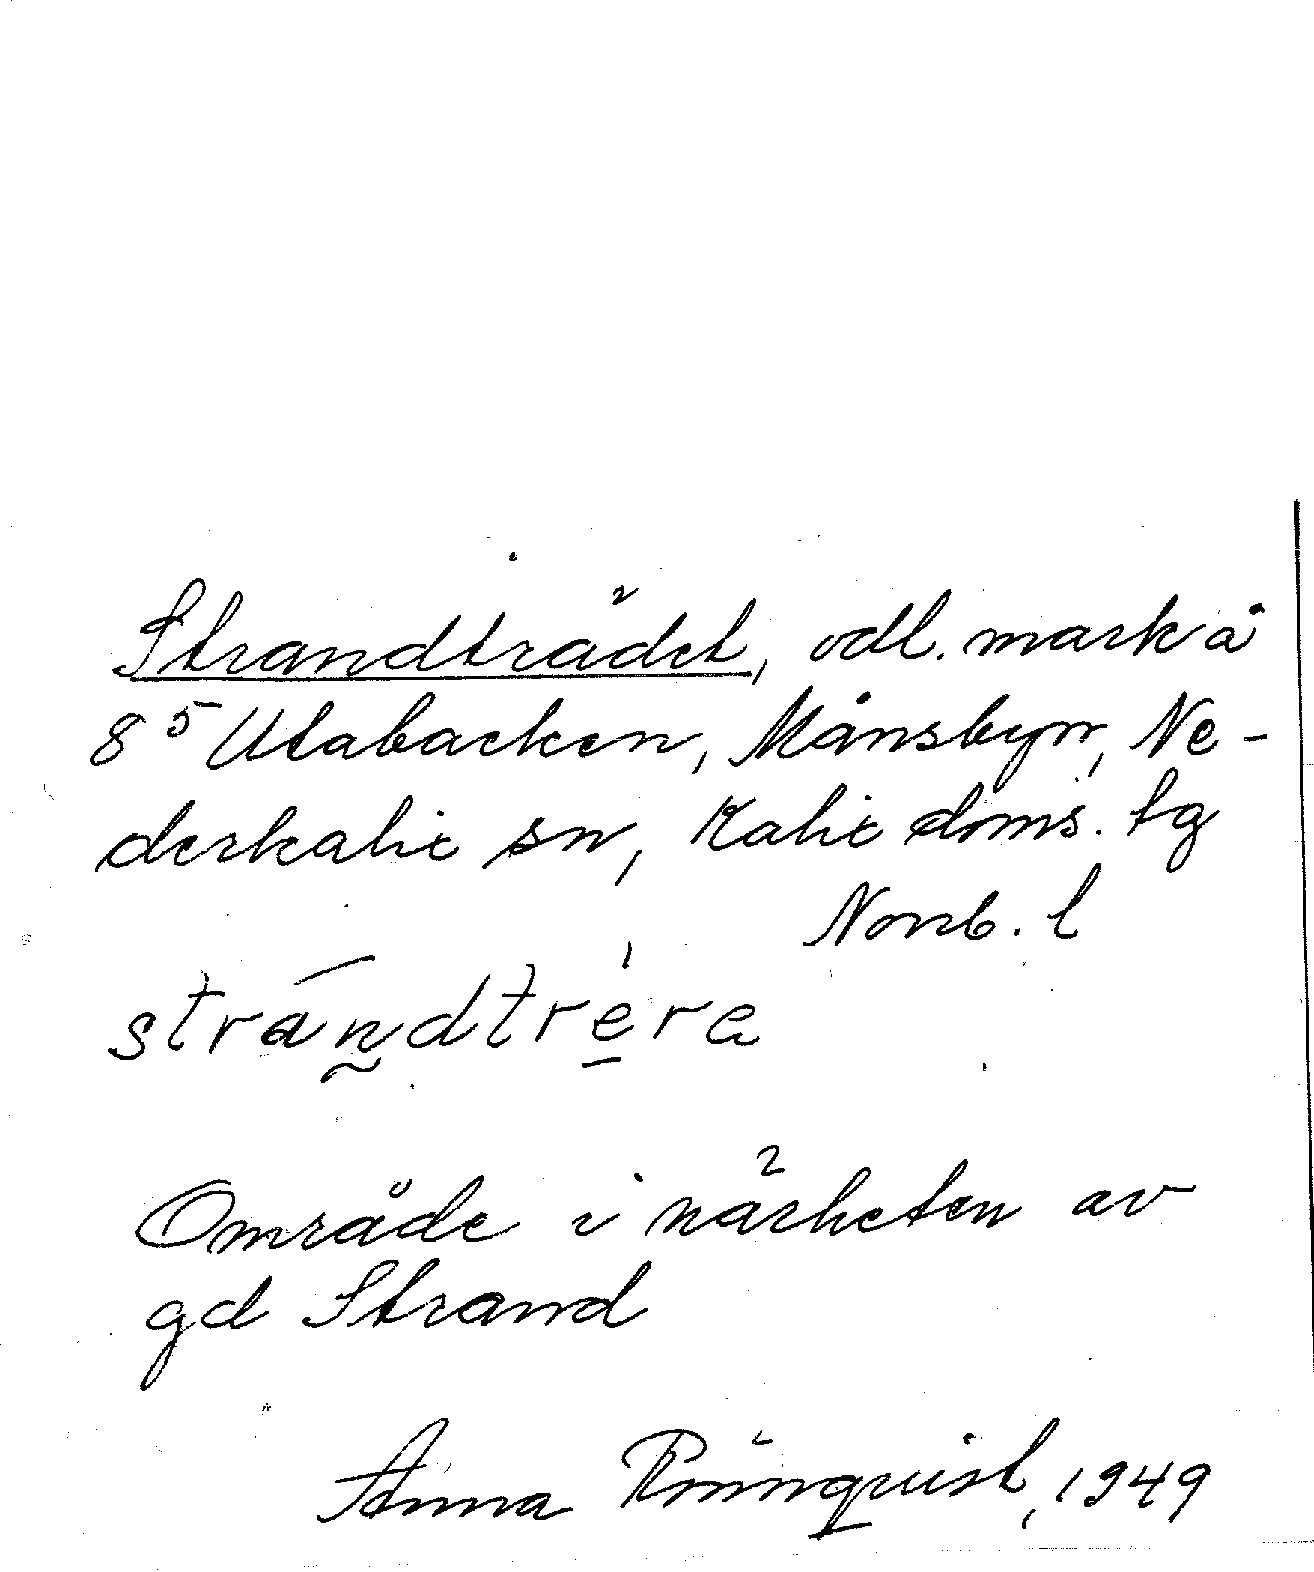 Strandträdet, odl. mark å
8⁵ Utabacken, Månsbyn, Ne-
derkalix sn, Kalix doms. tg
Norrb. l
strandtrera
Område i närheten av
gd Strand
Anna Rönnquist, 1949